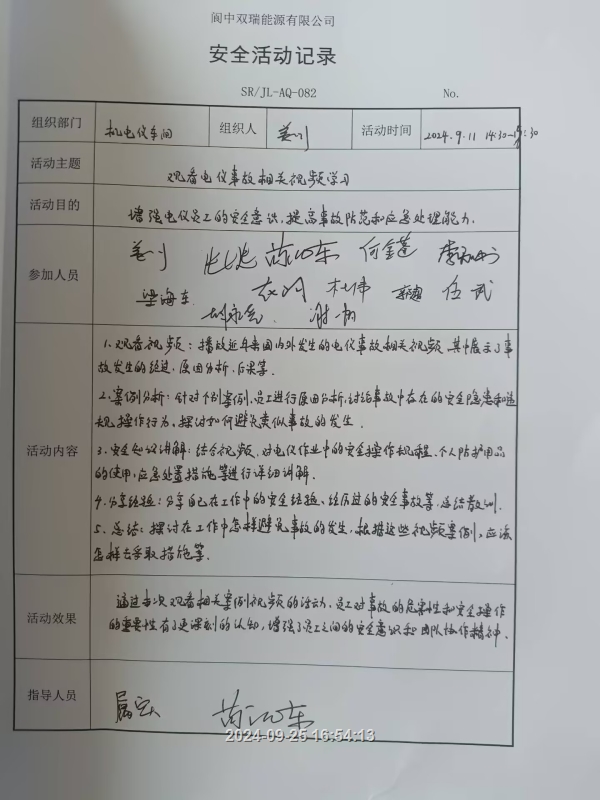 阆中双瑞能源有限公司
安全活动记录
SR/JL-AQ-082 No.
组织部门 机电仪车间 组织人 姜川 活动时间 2024.9.11 14:30-15:30
活动主题 观看电仪事故相关视频学习
活动目的 增强电仪员工的安全意识,提高事故防范和应急处理能力.
姜川 何金蓬
参加人员
梁海东 杜伟 任武
1.观看视频:播放近年来国内外发生的电仪事故相关视频,其中展示了事
故发生的经过,原因分析,后果等.
2.案例分析:针对个别案例,员工进行原因分析,讨论事故中存在的安全隐患和违
规操作行为,探讨如何避免类似事故的发生.
活动内容
3.安全知识讲解:结合视频,对电仪作业中的安全操作规程,个人防护用品
的使用,应急处置措施等进行详细讲解.
4.分享经验:分享自己在工作中的安全经验、经历过的安全事故等,总结教训.
5.总结:探讨在工作中怎样避免事故的发生,根据这些视频案例,应该
怎样去采取措施等.
活动效果
通过本次观看相关案例视频的活动,员工对事故的危害性和安全操作
的重要性有了更深刻的认知,增强了员工之间的安全意识和团队协作精神.
指导人员
2024-09-25 16:54:13